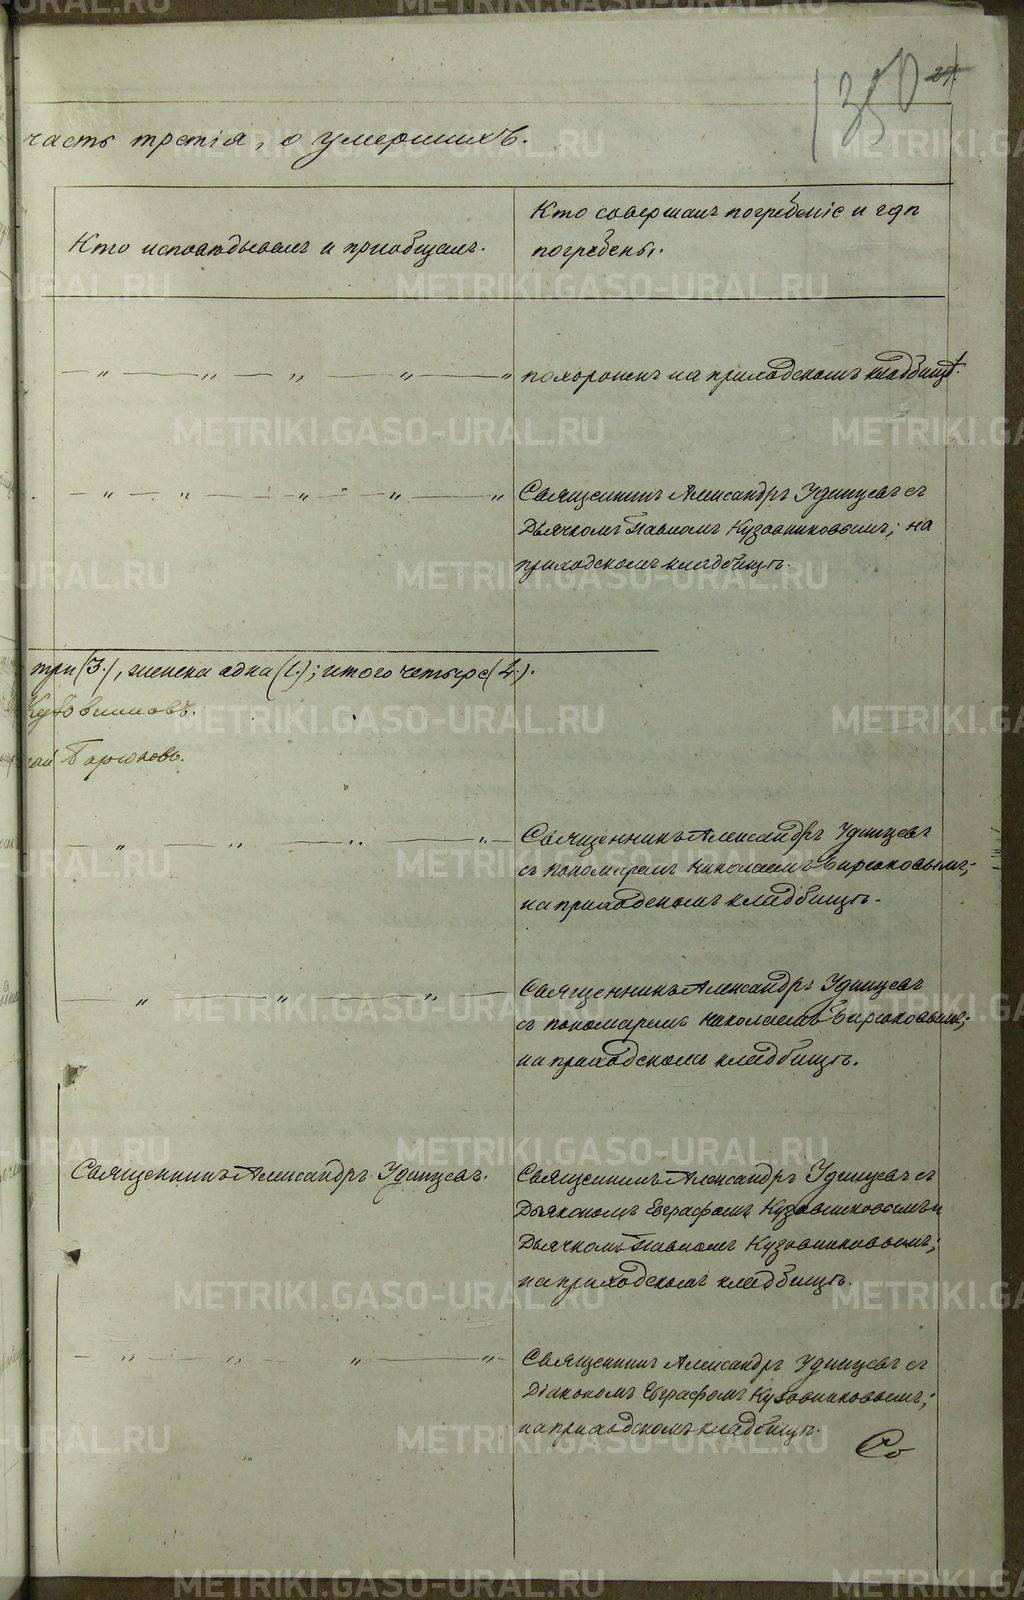 1350
24.
часть третія, о умершихъ.
Кто исповѣдывалъ и пріобщалъ.
Кто совершалъ погребеніе и гдѣ
погребены.
— „ — „ — „ — „ — „
похороненъ на приходскомъ кладбищѣ.
— „ — „ — „ — „ — „
Священникъ Александръ Удинцевъ съ
Дьячкомъ Павломъ Кузовниковымъ; на
приходскомъ кладбищѣ.
три (3.), женска одна (1.); итого четыре (4.).
Кузовниковъ.
Бирюковъ.
„ „ — „ — „ —
Священникъ Александръ Удинцевъ
съ пономаремъ Николаемъ Бирюковымъ;
на приходскомъ кладбищѣ.
— „ — „ — „ —
Священникъ Александръ Удинцевъ
съ пономаремъ Николаемъ Бирюковымъ;
на приходскомъ кладбищѣ.
Священникъ Александръ Удинцевъ.
Священникъ Александръ Удинцевъ съ
Дьякономъ Евграфомъ Кузовниковымъ и
Дьячкомъ Павломъ Кузовниковымъ;
на приходскомъ кладбищѣ.
— „ — „ — „ — „ —
Священникъ Александръ Удинцевъ съ
Діакономъ Евграфомъ Кузовниковымъ;
на приходскомъ кладбищѣ.
Со
METRIKI.GASO-URAL.RU